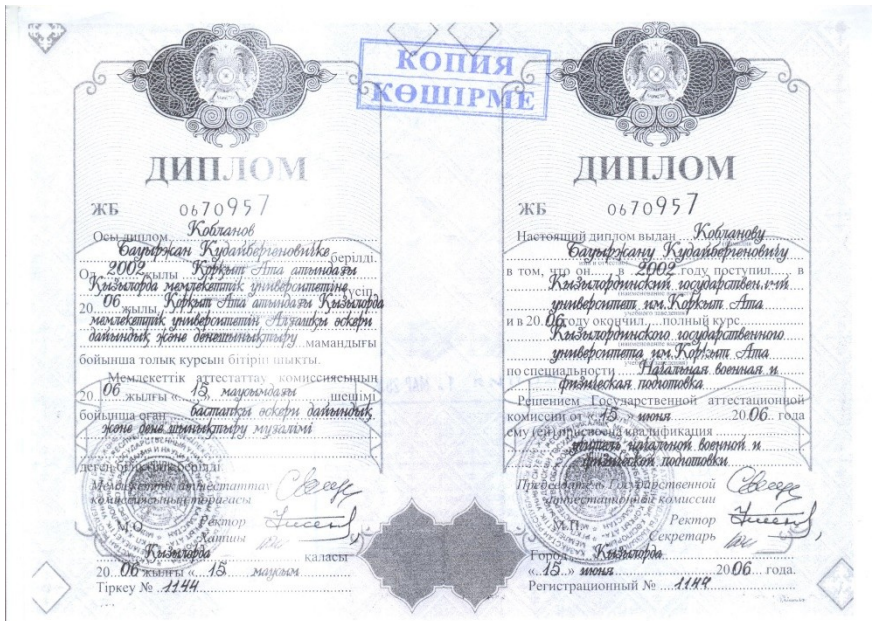 КОПИЯ
КӨШІРМЕ
ДИПЛОМ
ЖБ 0670957
Осы диплом Кобланов
Бауыржан Кудайбергеновичке берілді.
Ол 2002 жылы Қорқыт Ата атындағы
Қызылорда мемлекеттік университетіне түсіп,
20 06 жылы Қорқыт Ата атындағы Қызылорда
мемлекеттік университетін Алғашқы әскери
дайындық және денешынықтыру мамандығы
бойынша толық курсын бітіріп шықты.
Мемлекеттік аттестаттау комиссиясының
20 06 жылғы «15» маусымдағы шешімі
бойынша оған бастапқы әскери дайындық
және дене шынықтыру мұғалімі
деген біліктілік берілді
Мемлекеттік аттестаттау
комиссиясының төрағасы
М.О. Ректор
Хатшы
Қызылорда қаласы
20 06 жылғы «15 маусым
Тіркеу № 1144
ДИПЛОМ
ЖБ 0670957
Настоящий диплом выдан Кобланову
Бауыржану Кудайбергеновичу
в том, что он в 2002 году поступил в
Кызылординский государствен.ный
университет им. Коркыт Ата
и в 20 06 году окончил полный курс
Кызылординского государственного
университета им. Коркыт Ата
по специальности Начальная военная и
физическая подготовка
Решением Государственной аттестационной
комиссии от «15» июня 20 06 года
ему (ей) присвоена квалификация
учитель начальной военной и
физической подготовки
Председатель Государственной
аттестационной комиссии
М.П. Ректор
Секретарь
Город Кызылорда
«15» июня 20 06 года.
Регистрационный № 1144